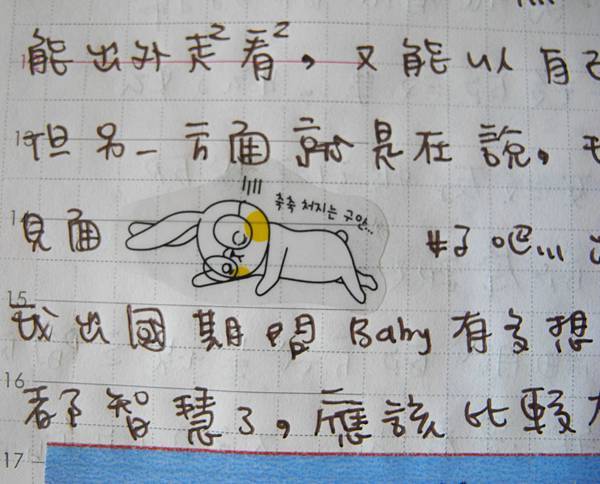 能出外走²看²，又能以自己
13 但另一方面就是在說，
축축 처지는 구만...
14 見面 好吧...
15
我出國期間 Baby 有多想
16
都智慧了，應該比較
17